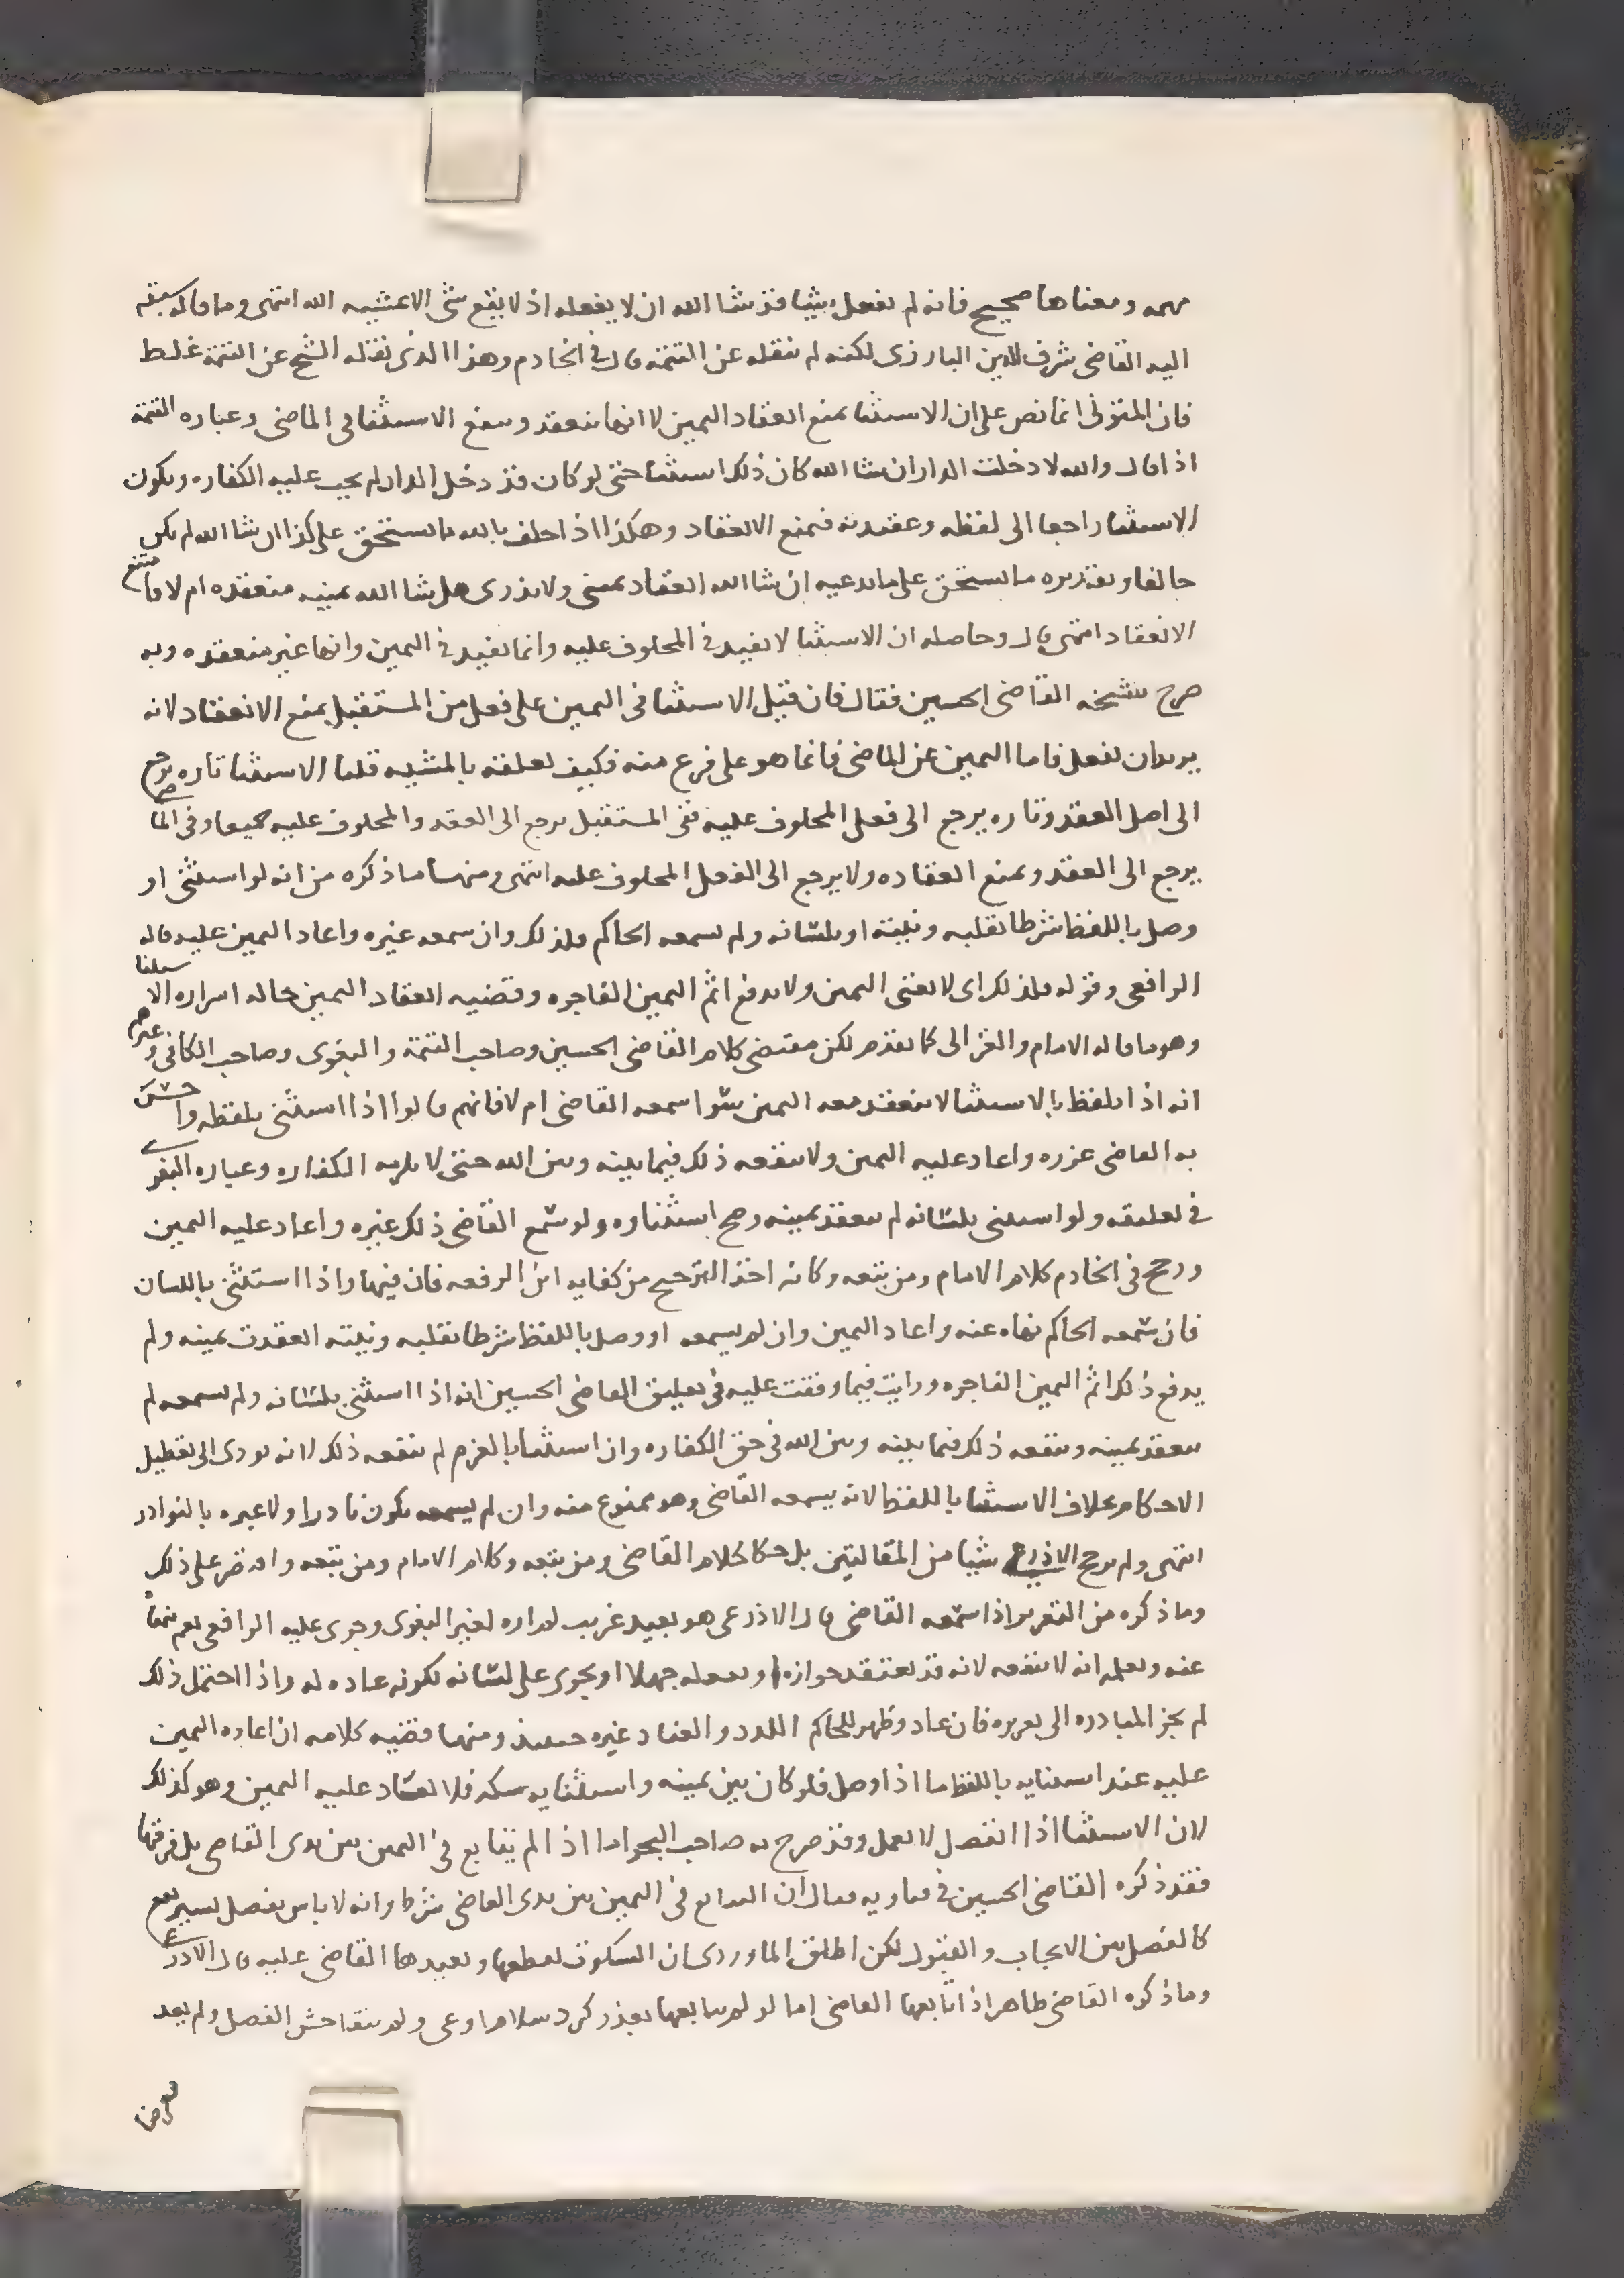 مهمه ومعناها صحيح فانه لم يفعل شيئا فقد شا الله ان لا يفعله اذ لا يقع شي الا بمشيه الله انتهى وما قاله سبقه
اليه القاضى شرف الدين البارزى لكنه لم ينقله عن التتمة قال فى الخادم وهذا الذى نقله الشيخ عن التتمة غلط
فان المتولى انما نص على ان الاستثنا يمنع انعقاد اليمين لا انها تنعقد وينفع الاستثنا فى الماضى وعباره التتمة
اذا قال والله لا دخلت الدار ان شا الله كان ذلك استثنا حتى لو كان قد دخل الدار لم يجب عليه الكفاره ويكون
الاستثنا راجعا الى لفظه وعقيدته فيمنع الانعقاد وهكذا اذا حلف بالله ما يستحق على كذا ان شا الله لم يكن
حالفا وتقديره ما يستحق على ما يدعيه ان شا الله انعقاد يمينى ولا ندرى هل شا الله يمينه منعقده ام لا فامتنع
الانعقاد انتهى قال وحاصله ان الاستثنا لا يفيد فى المحلوف عليه وانما يفيد فى اليمين وانها غير منعقده وبه
صرح شيخه القاضى الحسين فقال فان قيل الاستثنا فى اليمين على فعل من المستقبل يمنع الانعقاد لانه
يريد ان يفعل فاما اليمين عن الماضى فانما هو على فرع منه فكيف تعلقه بالمشيه قلنا الاستثنا تاره يرجع
الى اصل العقد وتاره يرجع الى فعل المحلوف عليه ففى المستقبل يرجع الى العقد والمحلوف عليه جميعا وفى الماضى
يرجع الى العقد ويمنع انعقاده ولا يرجع الى الفعل المحلوف عليه انتهى ومنها ما ذكره من انه لو استثنى او
وصل باللفظ شرطا بقلبه ونيته او بلسانه ولم يسمعه الحاكم فلذلك وان سمعه غيره واعاد اليمين عليه قاله
الرافعى وقوله فلذلك اى لا يغنى اليمين ولا يدفع اثم اليمين الفاجره وقضيه انعقاد اليمين حاله اسراره الاستثنا
وهو ما قاله الامام والغزالى كما تقدم لكن مقتضى كلام القاضى الحسين وصاحب التتمة والبغوى وصاحب الكافى وغيرهم
انه اذا تلفظ بالاستثنا لا تنعقد معه اليمين سوا سمعه القاضى ام لا فانهم قالوا اذا استثنى بلفظه واحس
به القاضى عزره واعاد عليه اليمين ولا ينفعه ذلك فيما بينه وبين الله حتى لا يلزمه الكفاره وعباره البغوى
فى تعليقه ولو استثنى بلسانه لم ينعقد يمينه وصح استثناوه ولو سمع القاضى ذلك عزره واعاد عليه اليمين
ورجح فى الخادم كلام الامام ومن تبعه وكانه اخذ الترجيح من كفايه ابن الرفعه فان فيها واذا استثنى باللسان
فان سمعه الحاكم نهاه عنه واعاد اليمين وان لم يسمعه او وصل باللفظ شرطا بقلبه ونيته انعقدت يمينه ولم
يدفع ذلك اثم اليمين الفاجره ورايت فيما وقفت عليه فى تعليق القاضى الحسين انه اذا استثنى بلسانه ولم يسمعه لم
ينعقد يمينه وينفعه ذلك فيما بينه وبين الله فى حق الكفاره وان استثنا بالعزم لم ينفعه ذلك لانه يودى الى تعطيل
الاحكام بخلاف الاستثنا باللفظ لانه يسمعه القاضى وهو ممنوع منه وان لم يسمعه يكون نادرا ولا عبره بالنوادر
انتهى ولم يرجح الاذرعى شيا من المقالتين بل حكا كلام القاضى ومن تبعه وكلام الامام ومن تبعه واقتصر على ذلك
وما ذكره من التعزير اذا سمعه القاضى قال الاذرعى هو بعيد غريب لم اره لغير البغوى وجرى عليه الرافعى نعم ينهاه
عنه ويعلمه انه لا ينفعه لانه قد يعتقد جوازه او يفعله جهلا او يجرى على لسانه لكونه عاده له واذا احتمل ذلك
لم يجز المبادره الى تعزيره فان عاد وظهر للحاكم اللدد والعناد عزره حينيذ ومنها قضيه كلامه ان اعاده اليمين
عليه عند استثنايه باللفظ ما اذا وصل فلو كان بين يمينه واستثنايه سكته فلا تعاد عليه اليمين وهو كذلك
لان الاستثنا اذا انفصل لا يعمل وقد صرح به صاحب البحر اما اذا لم يتابع فى اليمين بين يدى القاضى بل فرقها
فقد ذكره القاضى الحسين فى فتاويه فقال ان التتابع فى اليمين بين يدى القاضى شرط وانه لا باس بفصل يسير يقع
كالفصل بين الايجاب والقبول لكن اطلق الماوردى ان السكوت يقطعها ويعيدها القاضى عليه قال الاذرعى
وما ذكره القاضى ظاهر اذا تابعها القاضى اما لو لم يتابعها بعذر كرد سلام او عى ولم يتفاحش الفصل ولم يعد